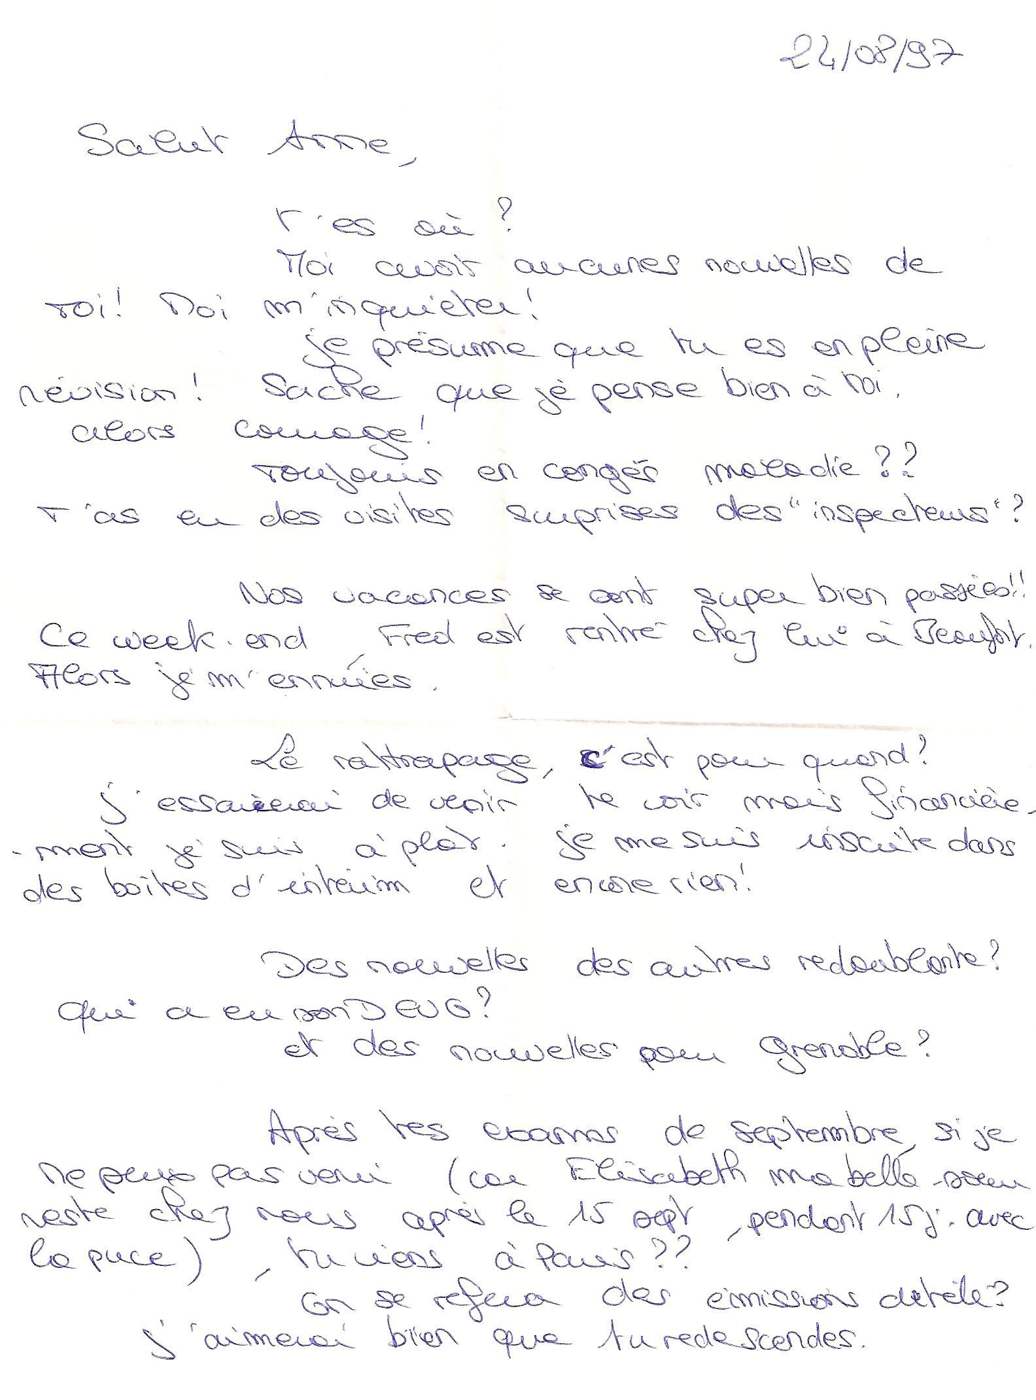 24/08/97
Salut Anne,
T'es où ?
Moi avoir aucunes nouvelles de
toi ! Moi m'inquiéter !
je présume que tu es en pleine
révision ! Sache que je pense bien à toi,
alors courage !
Toujours en congés maladie ??
T'as eu des visites surprises des "inspecteurs" ?
Nos vacances se sont super bien passées !!
Ce week-end, Fred est rentré chez lui à Beaufort.
Alors je m'ennuies.
Le rattrapage, c'est pour quand ?
j'essaierai de venir te voir mais financière-
-ment je suis à plat. je me suis inscrite dans
des boîtes d'intérim et encore rien !
Des nouvelles des autres redoublante ?
Qui a eu son DEUG ?
et des nouvelles pour Grenoble ?
Après tes exams de septembre, si je
ne peux pas venir (car Elisabeth ma belle-soeur
reste chez nous après le 15 sept, pendant 15 j. avec
la puce), tu viens à Paris ??
On se refera des émissions de télé ?
J'aimerai bien que tu redescendes.